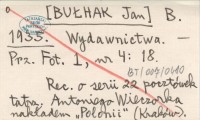 o [BUŁHAK Jan] B.
1935. Wydawnictwa. —
Prz. Fot. 1, nr 4: 18.
BT/007/0610
Rec. o serii 22 pocztówek
tatrz. Antoniego Wieczorka
nakładem „Polonii” (Kraków).